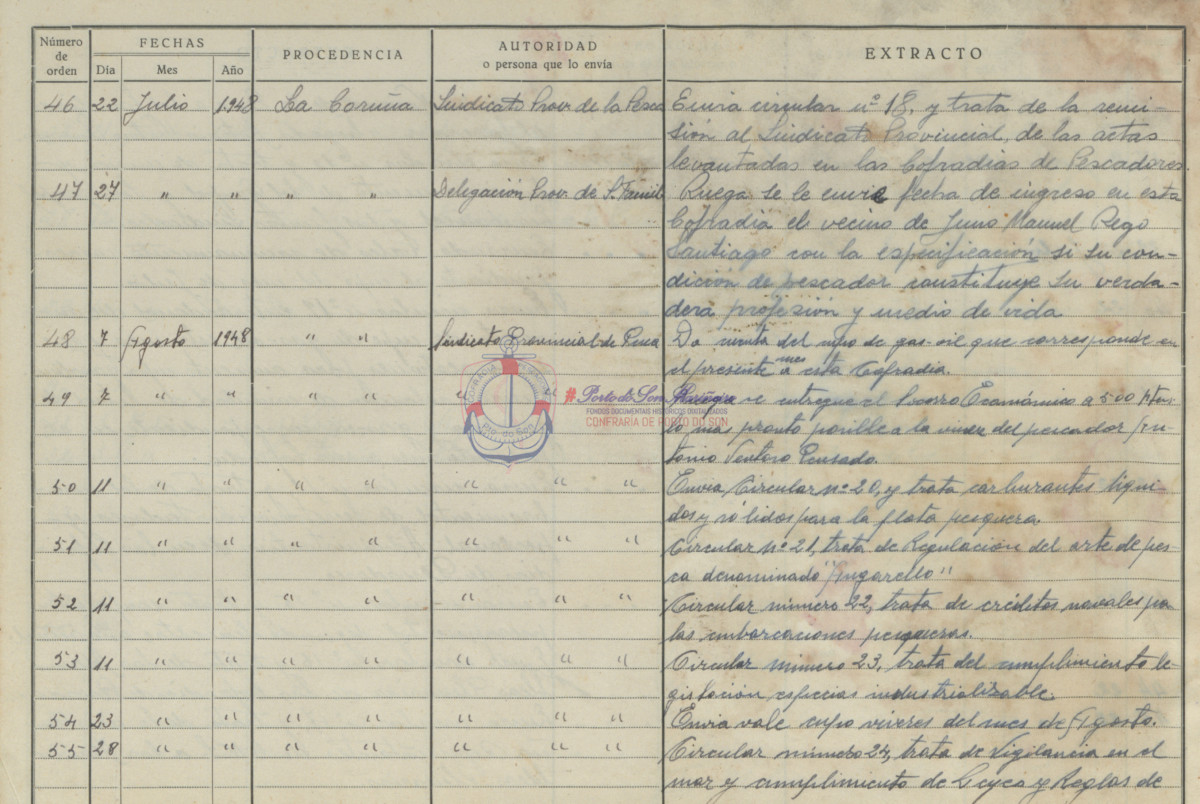 Número de orden FECHAS PROCEDENCIA AUTORIDAD o persona que lo envía EXTRACTO
Día Mes Año
46 22 Julio 1.948 La Coruña Sindicato Prov. de la Pesca Envia circular nº 18, y trata de la remi-
sión al Sindicato Provincial, de las actas
levantadas en las Cofradias de Pescadores.
47 27 " " " " Delegación Prov. de S. Famil. Ruega se le envie fecha de ingreso en esta
Cofradia el vecino de Juno Manuel Rego
Santiago con la especificación si su con-
dición de pescador constituye su verda-
dera profesión y medio de vida
48 7 Agosto 1948 " " Sindicato Provincial de Pesca Da cuenta del cupo de gas-oil que corresponde en
el presente mes a esta Cofradia.
49 7 " " " " " " se entregue el Socorro Económico a 500 ptas
lo mas pronto posible a la viuda del pescador An-
tonio Ventoso Pensado.
#PortodoSon
FONDOS DOCUMENTAIS HISTÓRICOS DIXITALIZADOS
CONFRARIA DE PORTO DO SON
Pto. do Son
50 11 " " " " " " " Envia Circular nº 20, y trata carburantes liqui-
dos y sólidos para la flota pesquera.
51 11 " " " " " " " Circular nº 21, trata de Regulación del arte de pes-
ca denominado
52 11 " " " " " " " Circular número 22, trata de créditos navales pa
las embarcaciones pesqueras.
53 11 " " " " " " " Circular número 23, trata del cumplimiento le-
gislación especias industrializable.
54 23 " " " " " " " Envia vale cupo viveres del mes de Agosto.
55 28 " " " " " " " Circular número 24, trata de Vigilancia en el
mar y cumplimiento de Leyes y Reglas de